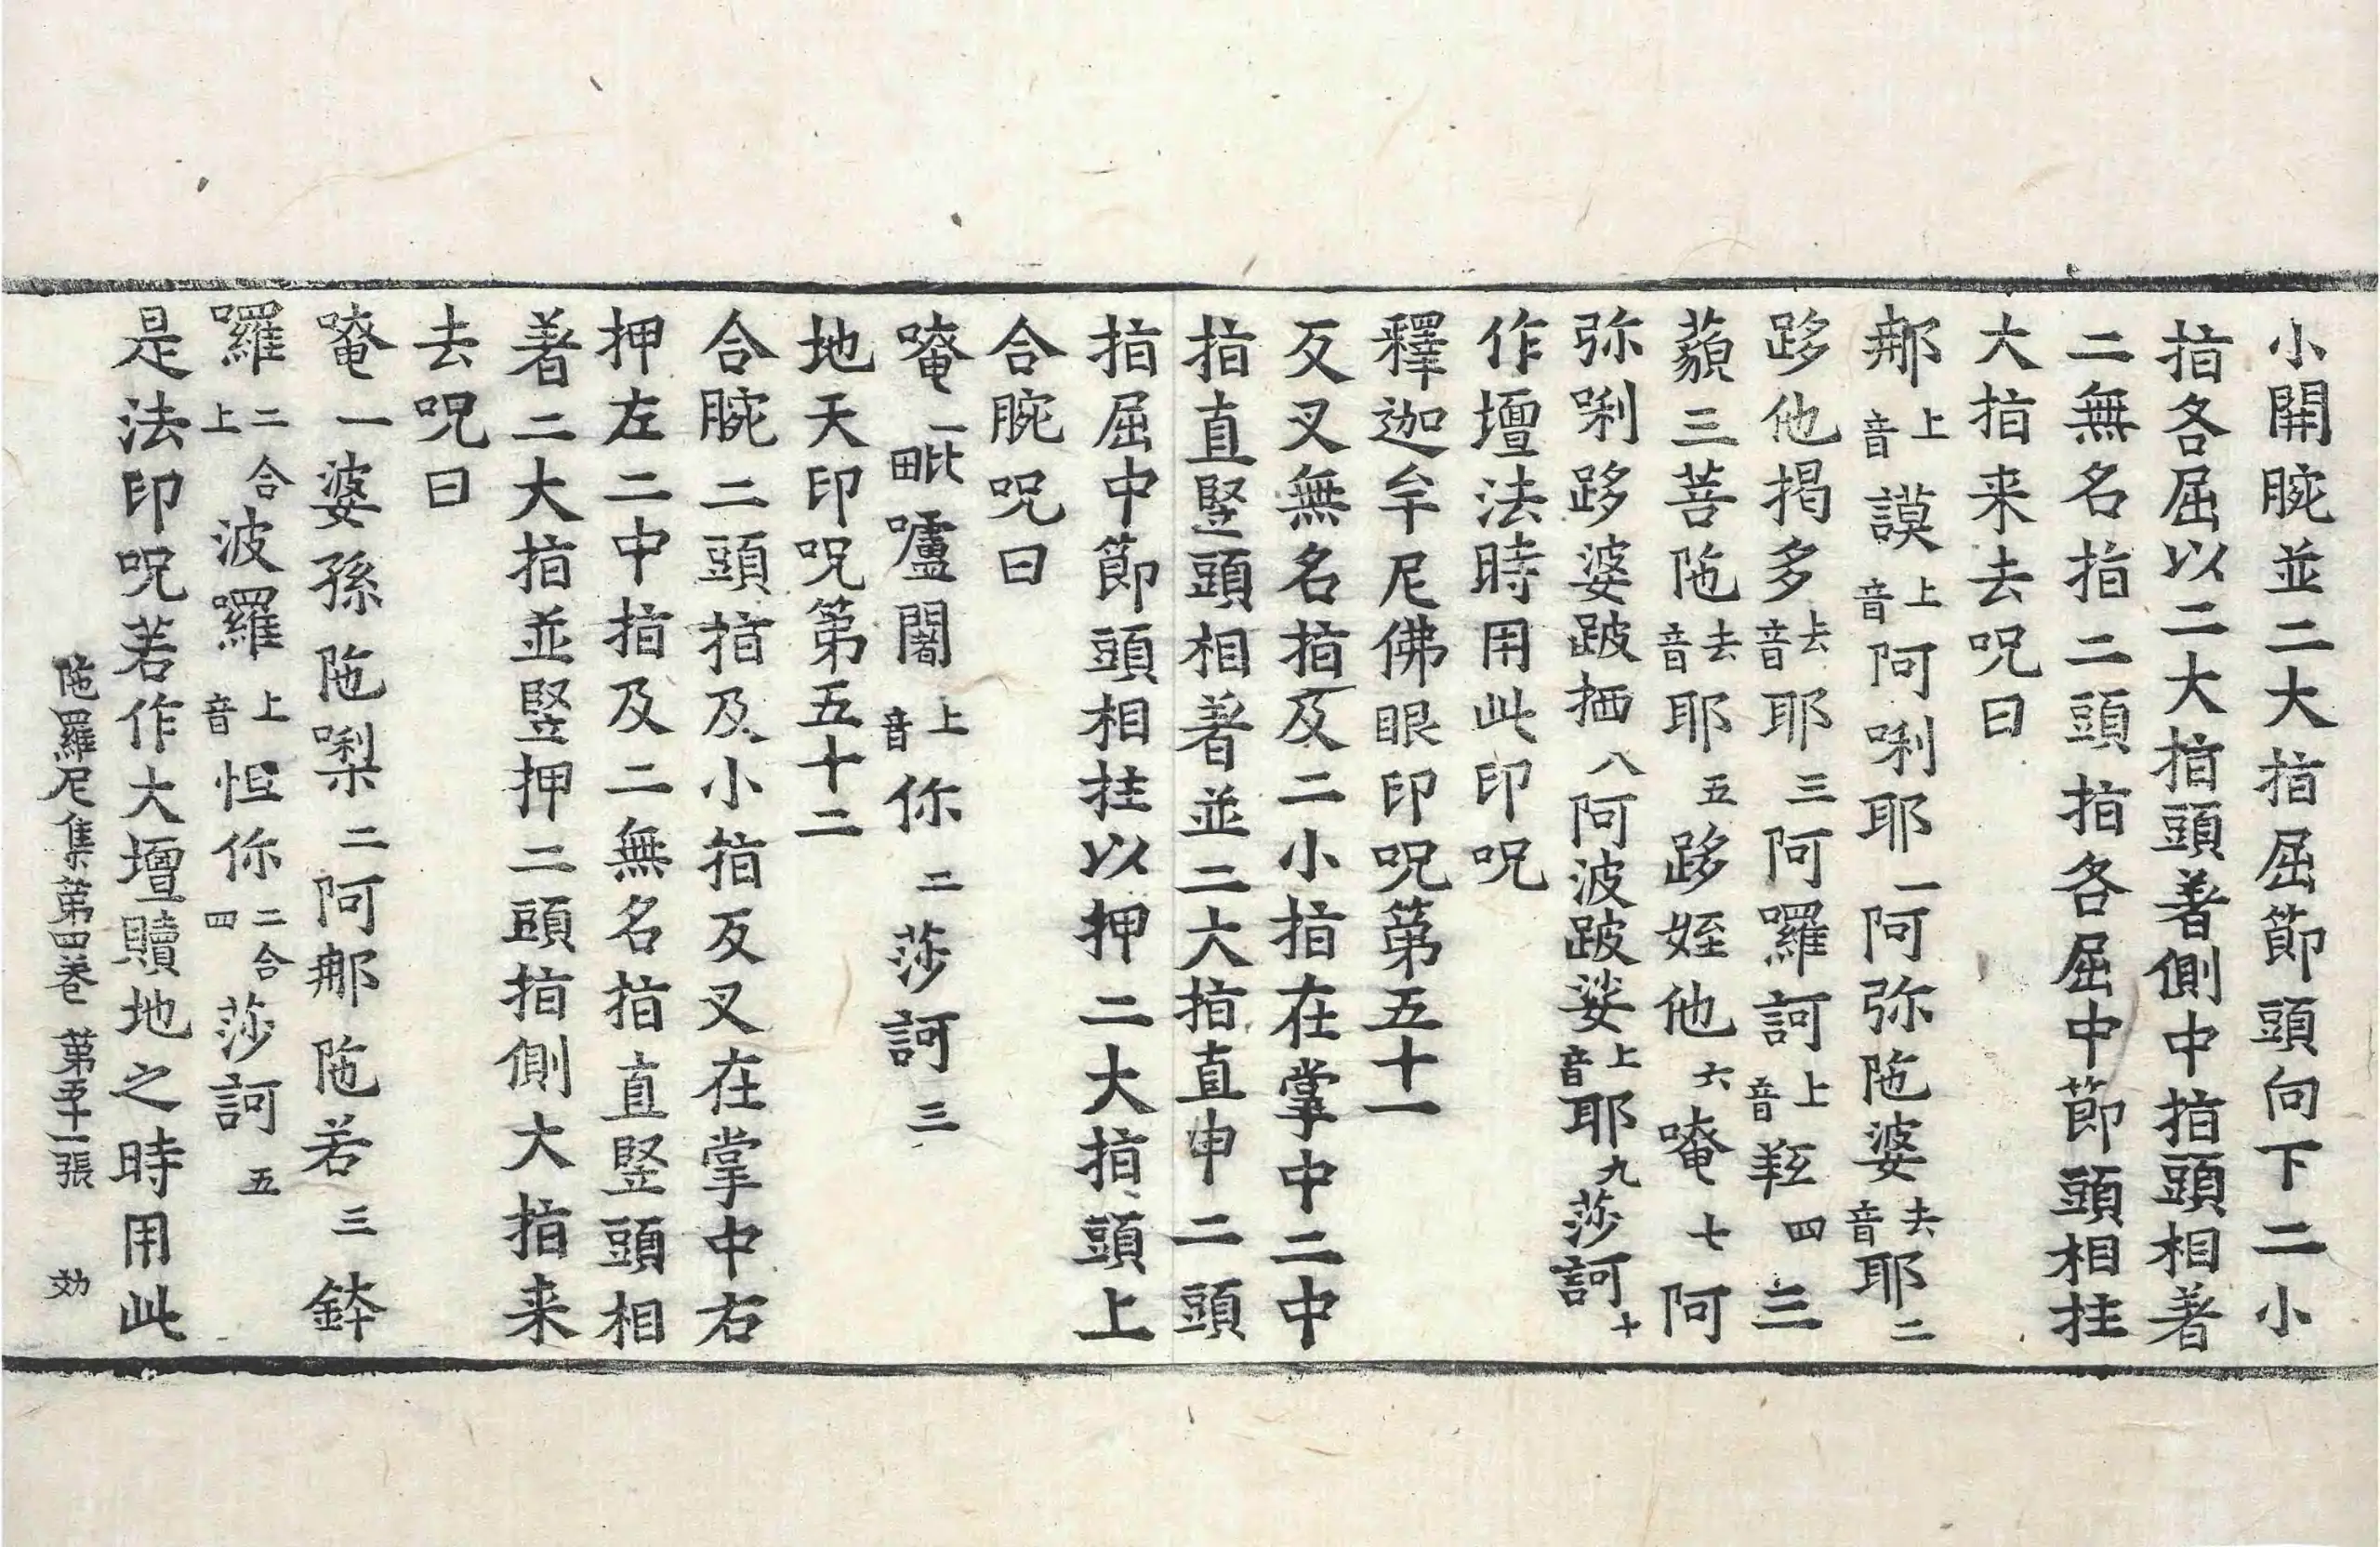 小開腕並二大指屈節頭向下二小
指各屈以二大指頭著側中指頭相著
二無名指二頭指各屈中節頭相拄
大指来去呪曰
那上音謨上音阿唎耶一阿弥陁婆去音耶二
跢他揭多去音耶三阿羅訶上音羝四三
藐三菩陁去音耶五跢姪他六唵七阿
弥唎跢婆跛㮏八阿波跛娑上音耶九莎訶十
作壇法時用此印呪
釋迦牟尼佛眼印呪第五十一
反叉無名指及二小指在掌中二中
指直竪頭相著並二大指直申二頭
指屈中節頭相拄以押二大指頭上
合腕呪曰
唵一毗嚧闍上音你二莎訶三
地天印呪第五十二
合腕二頭指及小指反叉在掌中右
押左二中指及二無名指直竪頭相
著二大指並竪押二頭指側大指来
去呪曰
唵一婆孫陁㗚二阿那陁若三鉢
囉二合上波囉上音怛你二合四莎訶五
是法印呪若作大壇贖地之時用此
陁羅尼集第四卷 第五十一張 効